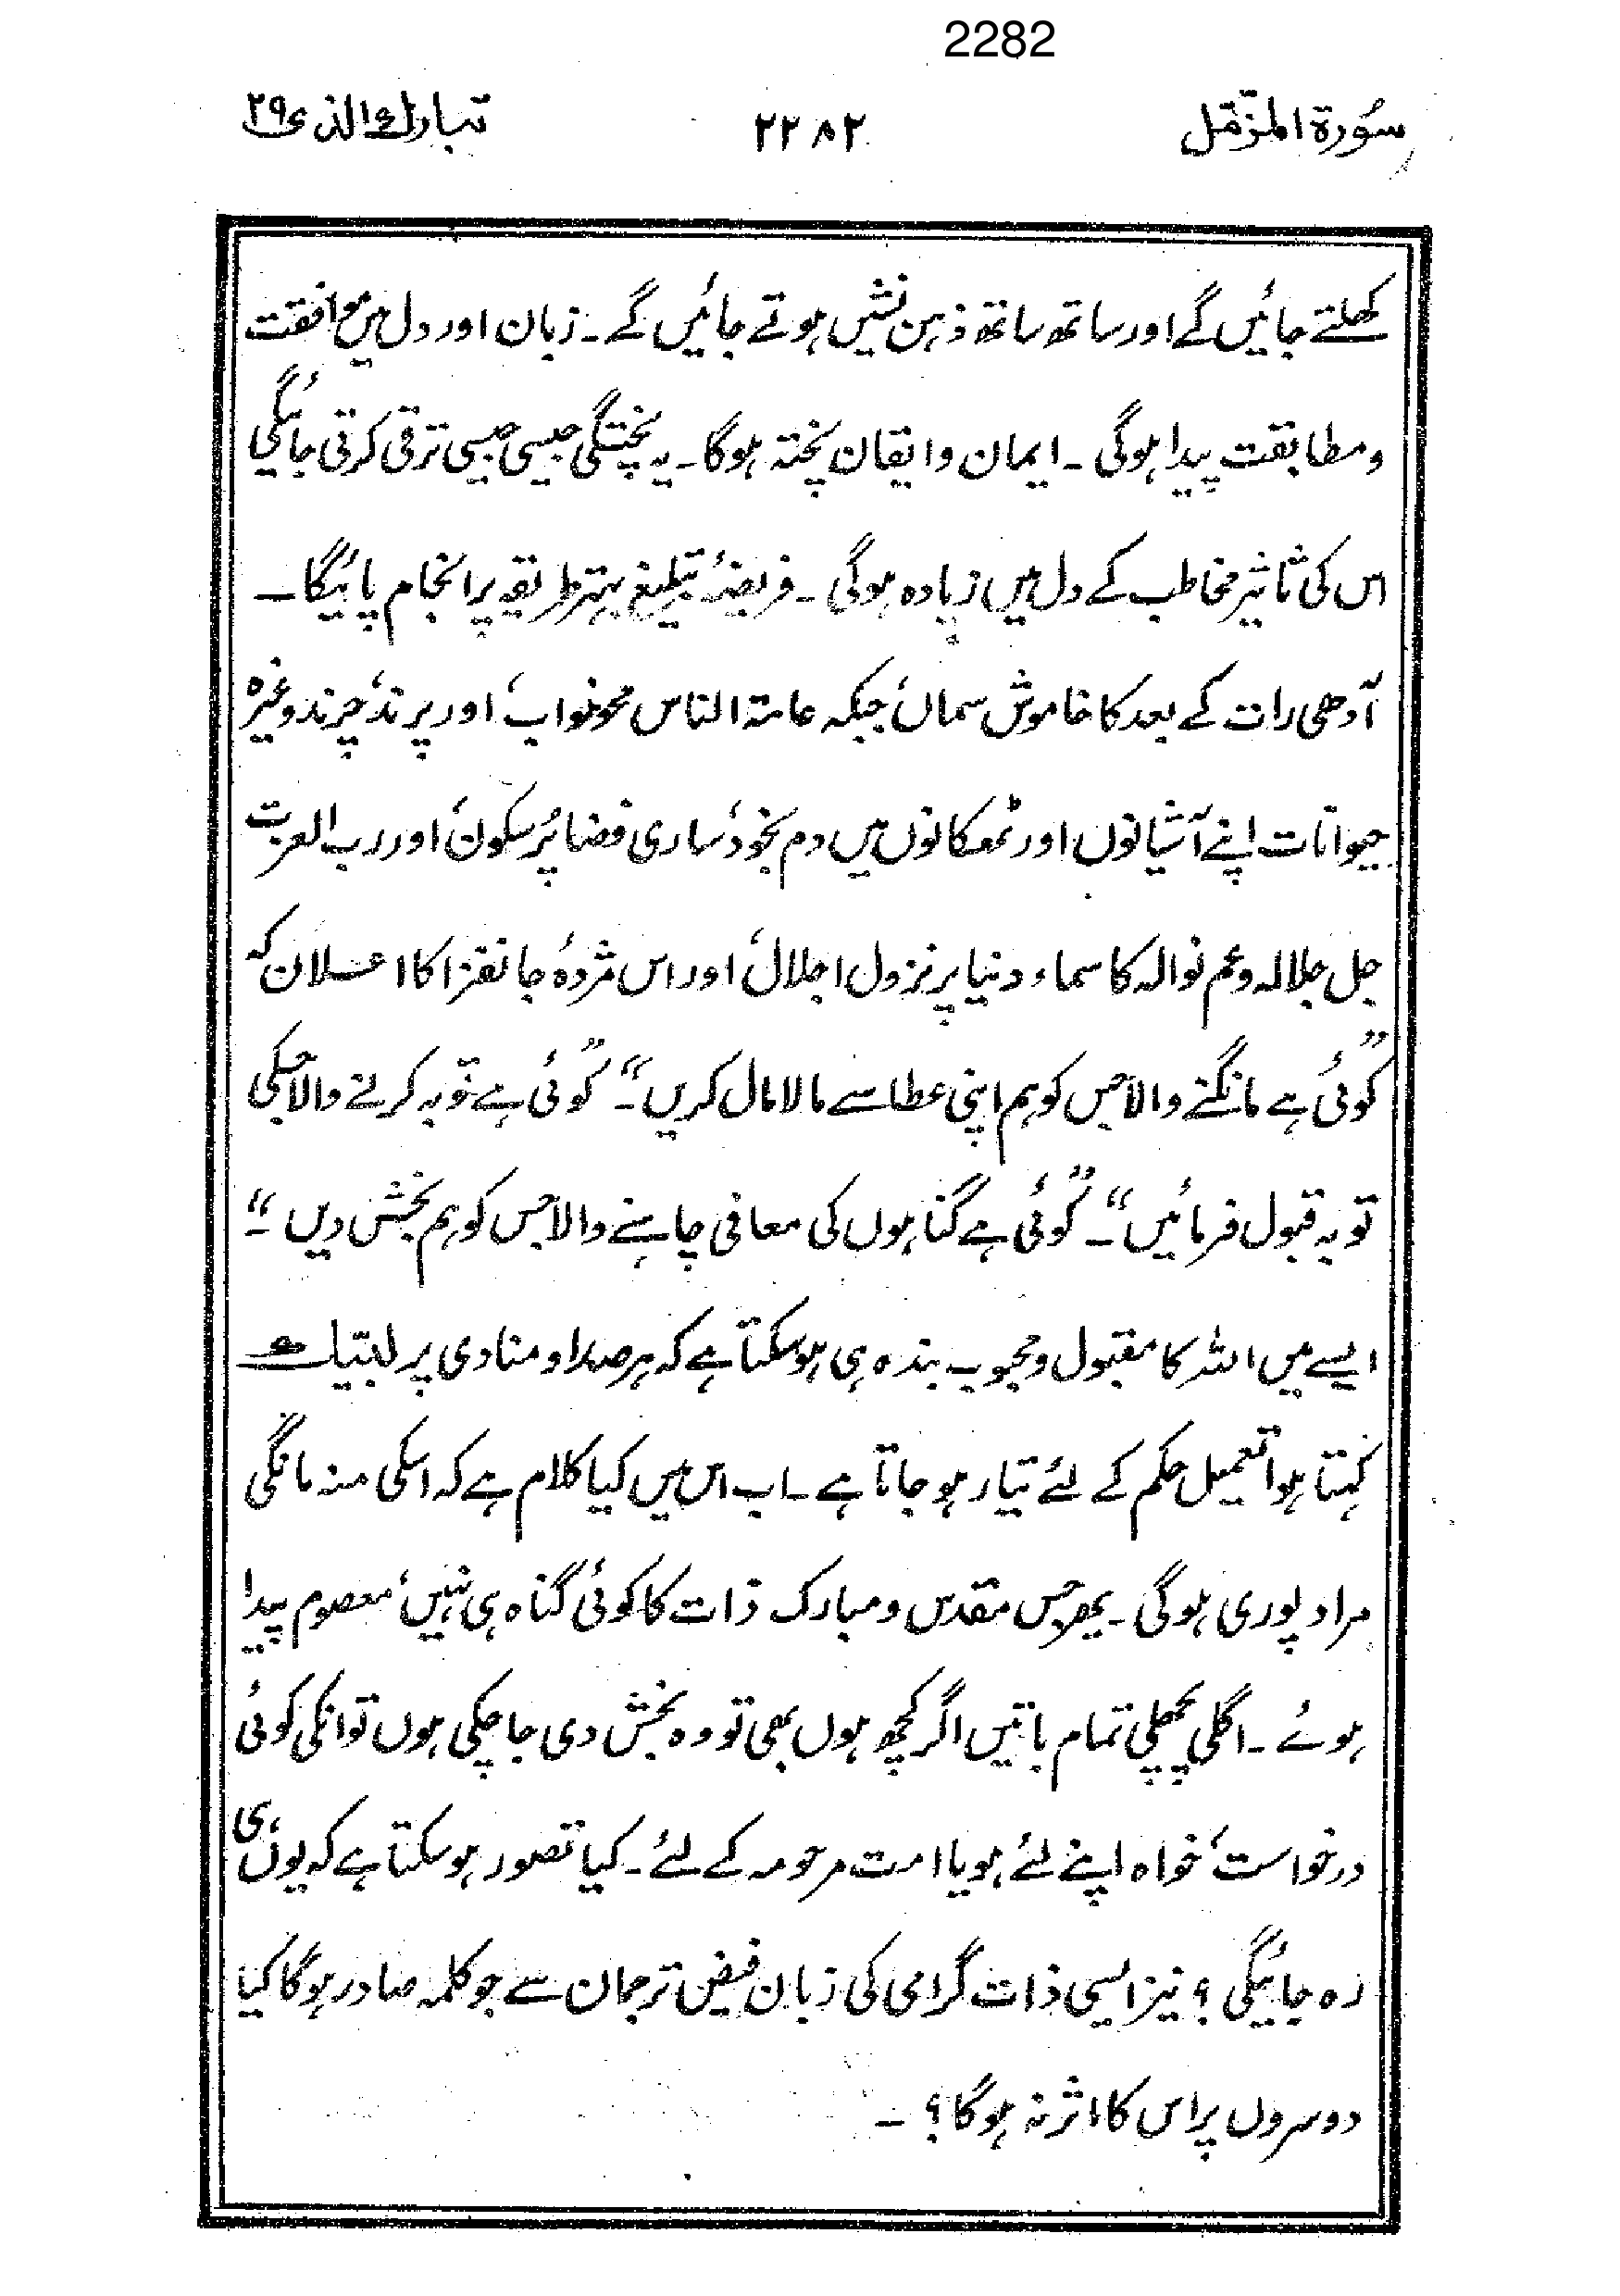 2282
سُورة المزّمّل ۲۲۸۲ تبارك الذى ۲۹
کھلتے جائیں گے اور ساتھ ساتھ ذہن نشیں ہوتے جائیں گے ۔ زبان اور دل میں موافقت
و مطابقت پیدا ہوگی ۔ ایمان و ایقان پختہ ہوگا ۔ یہ پختگی جیسی جیسی ترقی کرتی جائیگی
اس کی تاثیر مخاطب کے دل میں زیادہ ہوگی ۔ فریضۂ تبلیغ بہتر طریقہ پر انجام پائیگا ۔
آدھی رات کے بعد کا خاموش سماں، جبکہ عامۃ الناس محو خواب، اور پرند، چرند وغیرہ
حیوانات اپنے آشیانوں اور ٹھکانوں میں دم بخود، ساری فضا پُر سکون، اور رب العزت
جل جلالہ و عم نوالہ کا سماء دنیا پر نزول اجلال، اور اس مژدۂ جانفزا کا اعلان کہ
”کوئی ہے مانگنے والا جس کو ہم اپنی عطا سے مالا مال کریں“ ۔ ”کوئی ہے توبہ کرنے والا جسکی
توبہ قبول فرمائیں“ ۔ ”کوئی ہے گناہوں کی معافی چاہنے والا جس کو ہم بخش دیں“ ۔
ایسے میں اللہ کا مقبول و محبوب بندہ ہی ہوسکتا ہے کہ ہر صدا و منادی پر لبّیك
کہتا ہوا تعمیل حکم کے لئے تیار ہو جاتا ہے ۔ اب اس میں کیا کلام ہے کہ اسکی منہ مانگی
مراد پوری ہوگی ۔ پھر جس مقدس و مبارک ذات کا کوئی گناہ ہی نہیں، معصوم پیدا
ہوئے ۔ اگلی پچھلی تمام باتیں اگر کچھ ہوں بھی تو وہ بخش دی جا چکی ہوں تو انکی کوئی
درخواست، خواہ اپنے لئے ہو یا امت مرحومہ کے لئے ۔ کیا تصور ہوسکتا ہے کہ یوں ہی
رہ جائیگی ؟ نیز ایسی ذات گرامی کی زبان فیض ترجمان سے جو کلمہ صادر ہوگا کیا
دوسروں پر اس کا اثر نہ ہوگا ؟ ۔